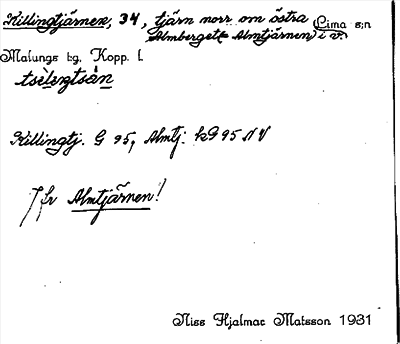 Killingtjärnen, 34, tjärn norr om östra Lima s:n
Almberget (Almtjärnen i v.
Malungs tg. Kopp. l.
tsèleŋtsàn
Killingtj. G 95, Almtj. kG 95 NV
Jfr Almtjärnen!
Niss Hjalmar Matsson 1931